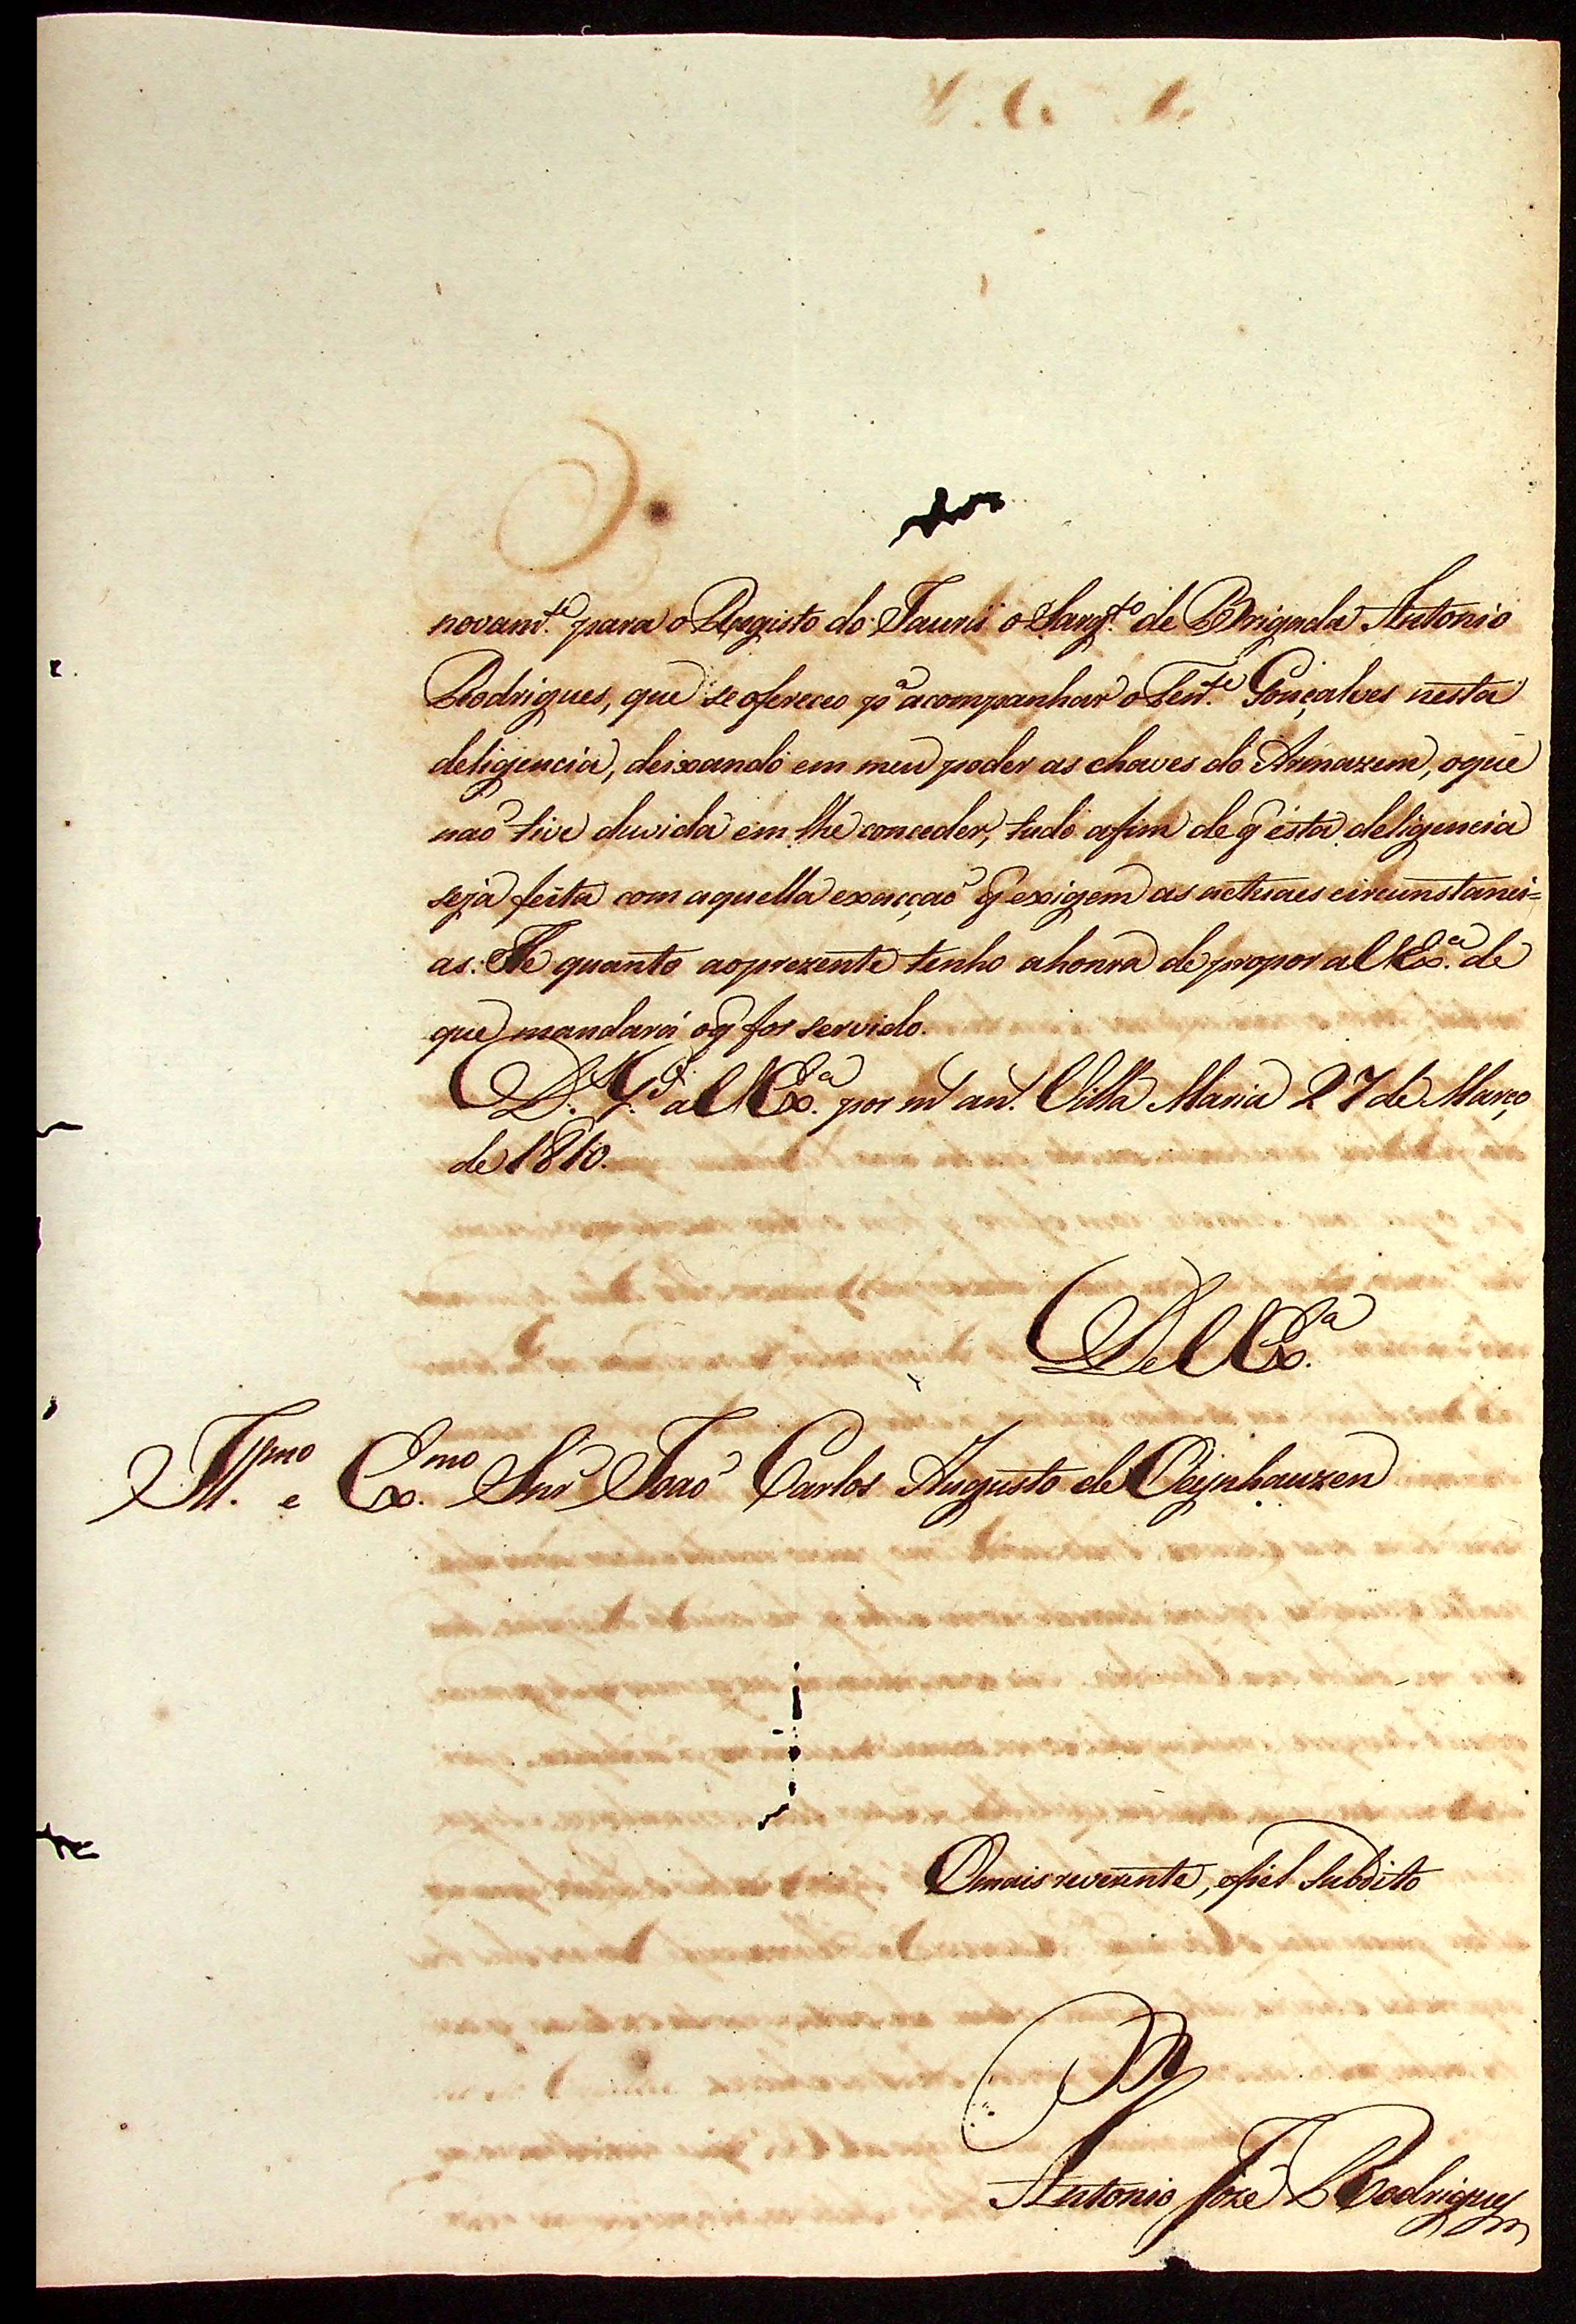 novam.te para o Registo do Jaurú o Sarg.to de Brigada Antonio
Rodrigues, que se ofereceo p.a acompanhar o Ten.te Gonçalves nesta
deligencia, deixando em meu poder as chaves do Armazem, oque
naõ tive duvida em lhe conceder, tudo afim de q̃ esta deligencia
seja feita com aquella exacçaõ q̃ exigem as actuaes circunstanci=
as: He quanto aoprezente tenho ahonra de propor a V Ex.a de
que mandará oq̃ for servido.
D.s G.de a V Ex.a por m.s an.s Villa Maria 27 de Março
de 1810.
De V Ex.a
Ill.mo e Ex.mo Snr Joaõ Carlos Augusto de Oeynhauzen
Omais reverente, efiel Subdito
Antonio Joze Rodrigues